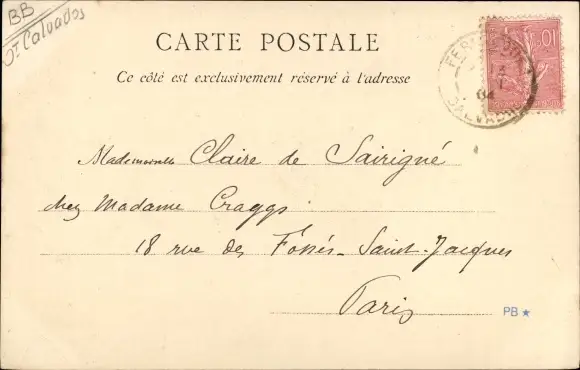 BB
Dt Calvados
CARTE POSTALE
Ce côté est exclusivement réservé à l'adresse
10
04
CALVADOS
Mademoiselle Claire de Sairigné
chez Madame Craggs
18 rue des Fossés-Saint-Jacques
Paris
PB